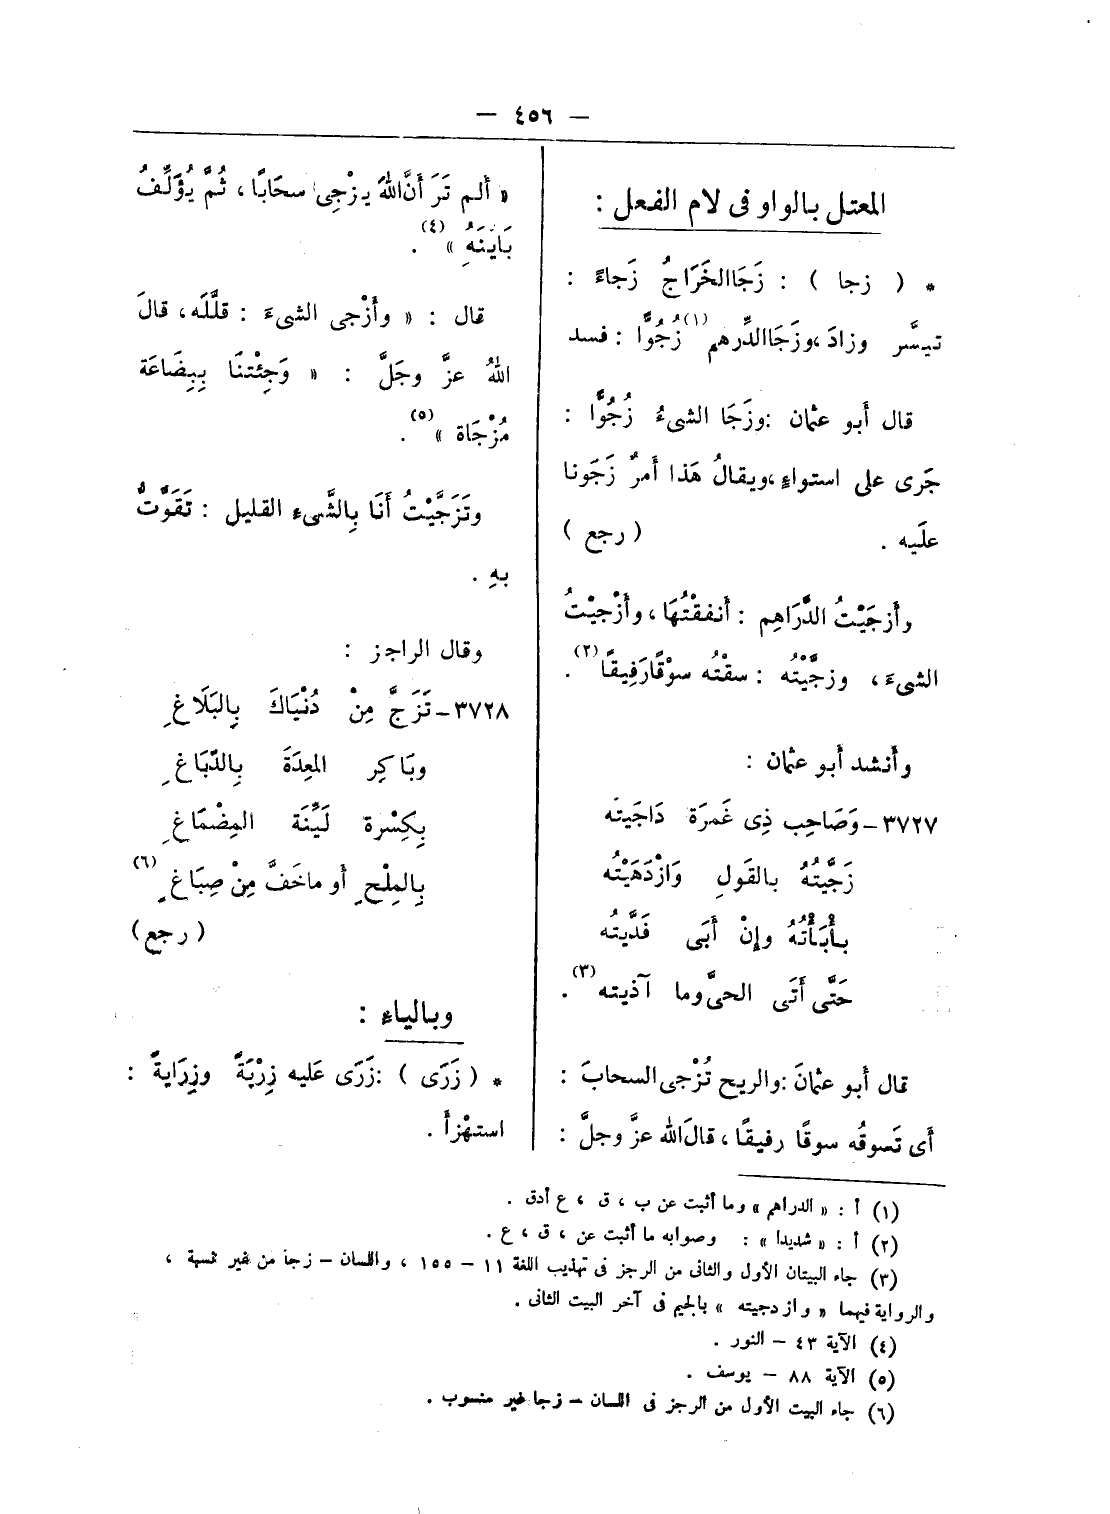 — ٤٥٦ —
المعتل بالواو فى لام الفعل :
* ( زجا ) : زَجَا الخَرَاجُ زَجاءً :
تيسَّر وزادَ ، وزَجَا الدِّرهم (١) زُجُوًّا : فسد
قال أبو عثمان : وزَجَا الشىءُ زُجُوًّا :
جَرى على استواءٍ ، ويقالُ هَذا أمرٌ زَجَونا
علَيه . ( رجع )
وأَزجَيْتُ الدَّرَاهِم : أَنفقْتُهَا ، وأَزْجيْتُ
الشىءَ ، وزجَّيْتُه : سقتُه سوْقًا رَفِيقًا (٢) .
وأنشد أبو عثمان :
٣٧٢٧ – وَصَاحِب ذِى غَمرَة دَاجَيتَه
زَجَّيتُهُ بالقَولِ وَازْدَهَيْتُه
بأْبَأْتُهُ وإِنْ أَبَى فَدَّيتُه
حَتَّى أَتَى الحىَّ وما آذيته (٣) .
قال أبو عثمانَ : والريح تُزْجى السحابَ :
أى تَسوقُه سوقًا رفيقًا ، قالَ الله عزَّ وجلَّ :
« ألم تَرَ أَنَّ اللهَ يزْجِى سحَابًا ، ثُمَّ يُؤَلِّفُ
بَيْنَهُ » (٤) .
قال : « وأَزْجى الشىءَ : قلَّلَه ، قالَ
اللهُ عزَّ وجلَّ : « وَجِئْتنَا بِبِضَاعَة
مُزْجَاة » (٥) .
وتَزَجَّيْتُ أَنَا بِالشَّىءِ القليل : تَقَوَّتُّ
بهِ .
وقال الراجز :
٣٧٢٨ – تَزَجَّ مِنْ دُنْيَاكَ بِالبَلَاغِ
وبَاكِر المعِدَةَ بِالدِّبَاغِ
بِكِسْرة لَيِّنَة المِضْمَاغِ
بِالمِلْحِ أَو ماخَفَّ مِنْ صِبَاغٍ (٦)
( رجع )
وبالياء :
* ( زَرَى ) : زَرَى عَليه زِرْيَةً وزِرَايةً :
استهْزأَ .
(١) أ : « الدراهم » وما أثبت عن ب ، ق ، ع أدق .
(٢) أ : « شديدا » : وصوابه ما أثبت عن ، ق ، ع .
(٣) جاء البيتان الأول والثانى من الرجز فى تهذيب اللغة ١١ – ١٥٥ ، واللسان – زجا من غير نسبة ،
والرواية فيهما « وازدجيته » بالجيم فى آخر البيت الثانى .
(٤) الآية ٤٣ – النور .
(٥) الآية ٨٨ – يوسف .
(٦) جاء البيت الأول من الرجز فى اللسان – زجا غير منسوب .